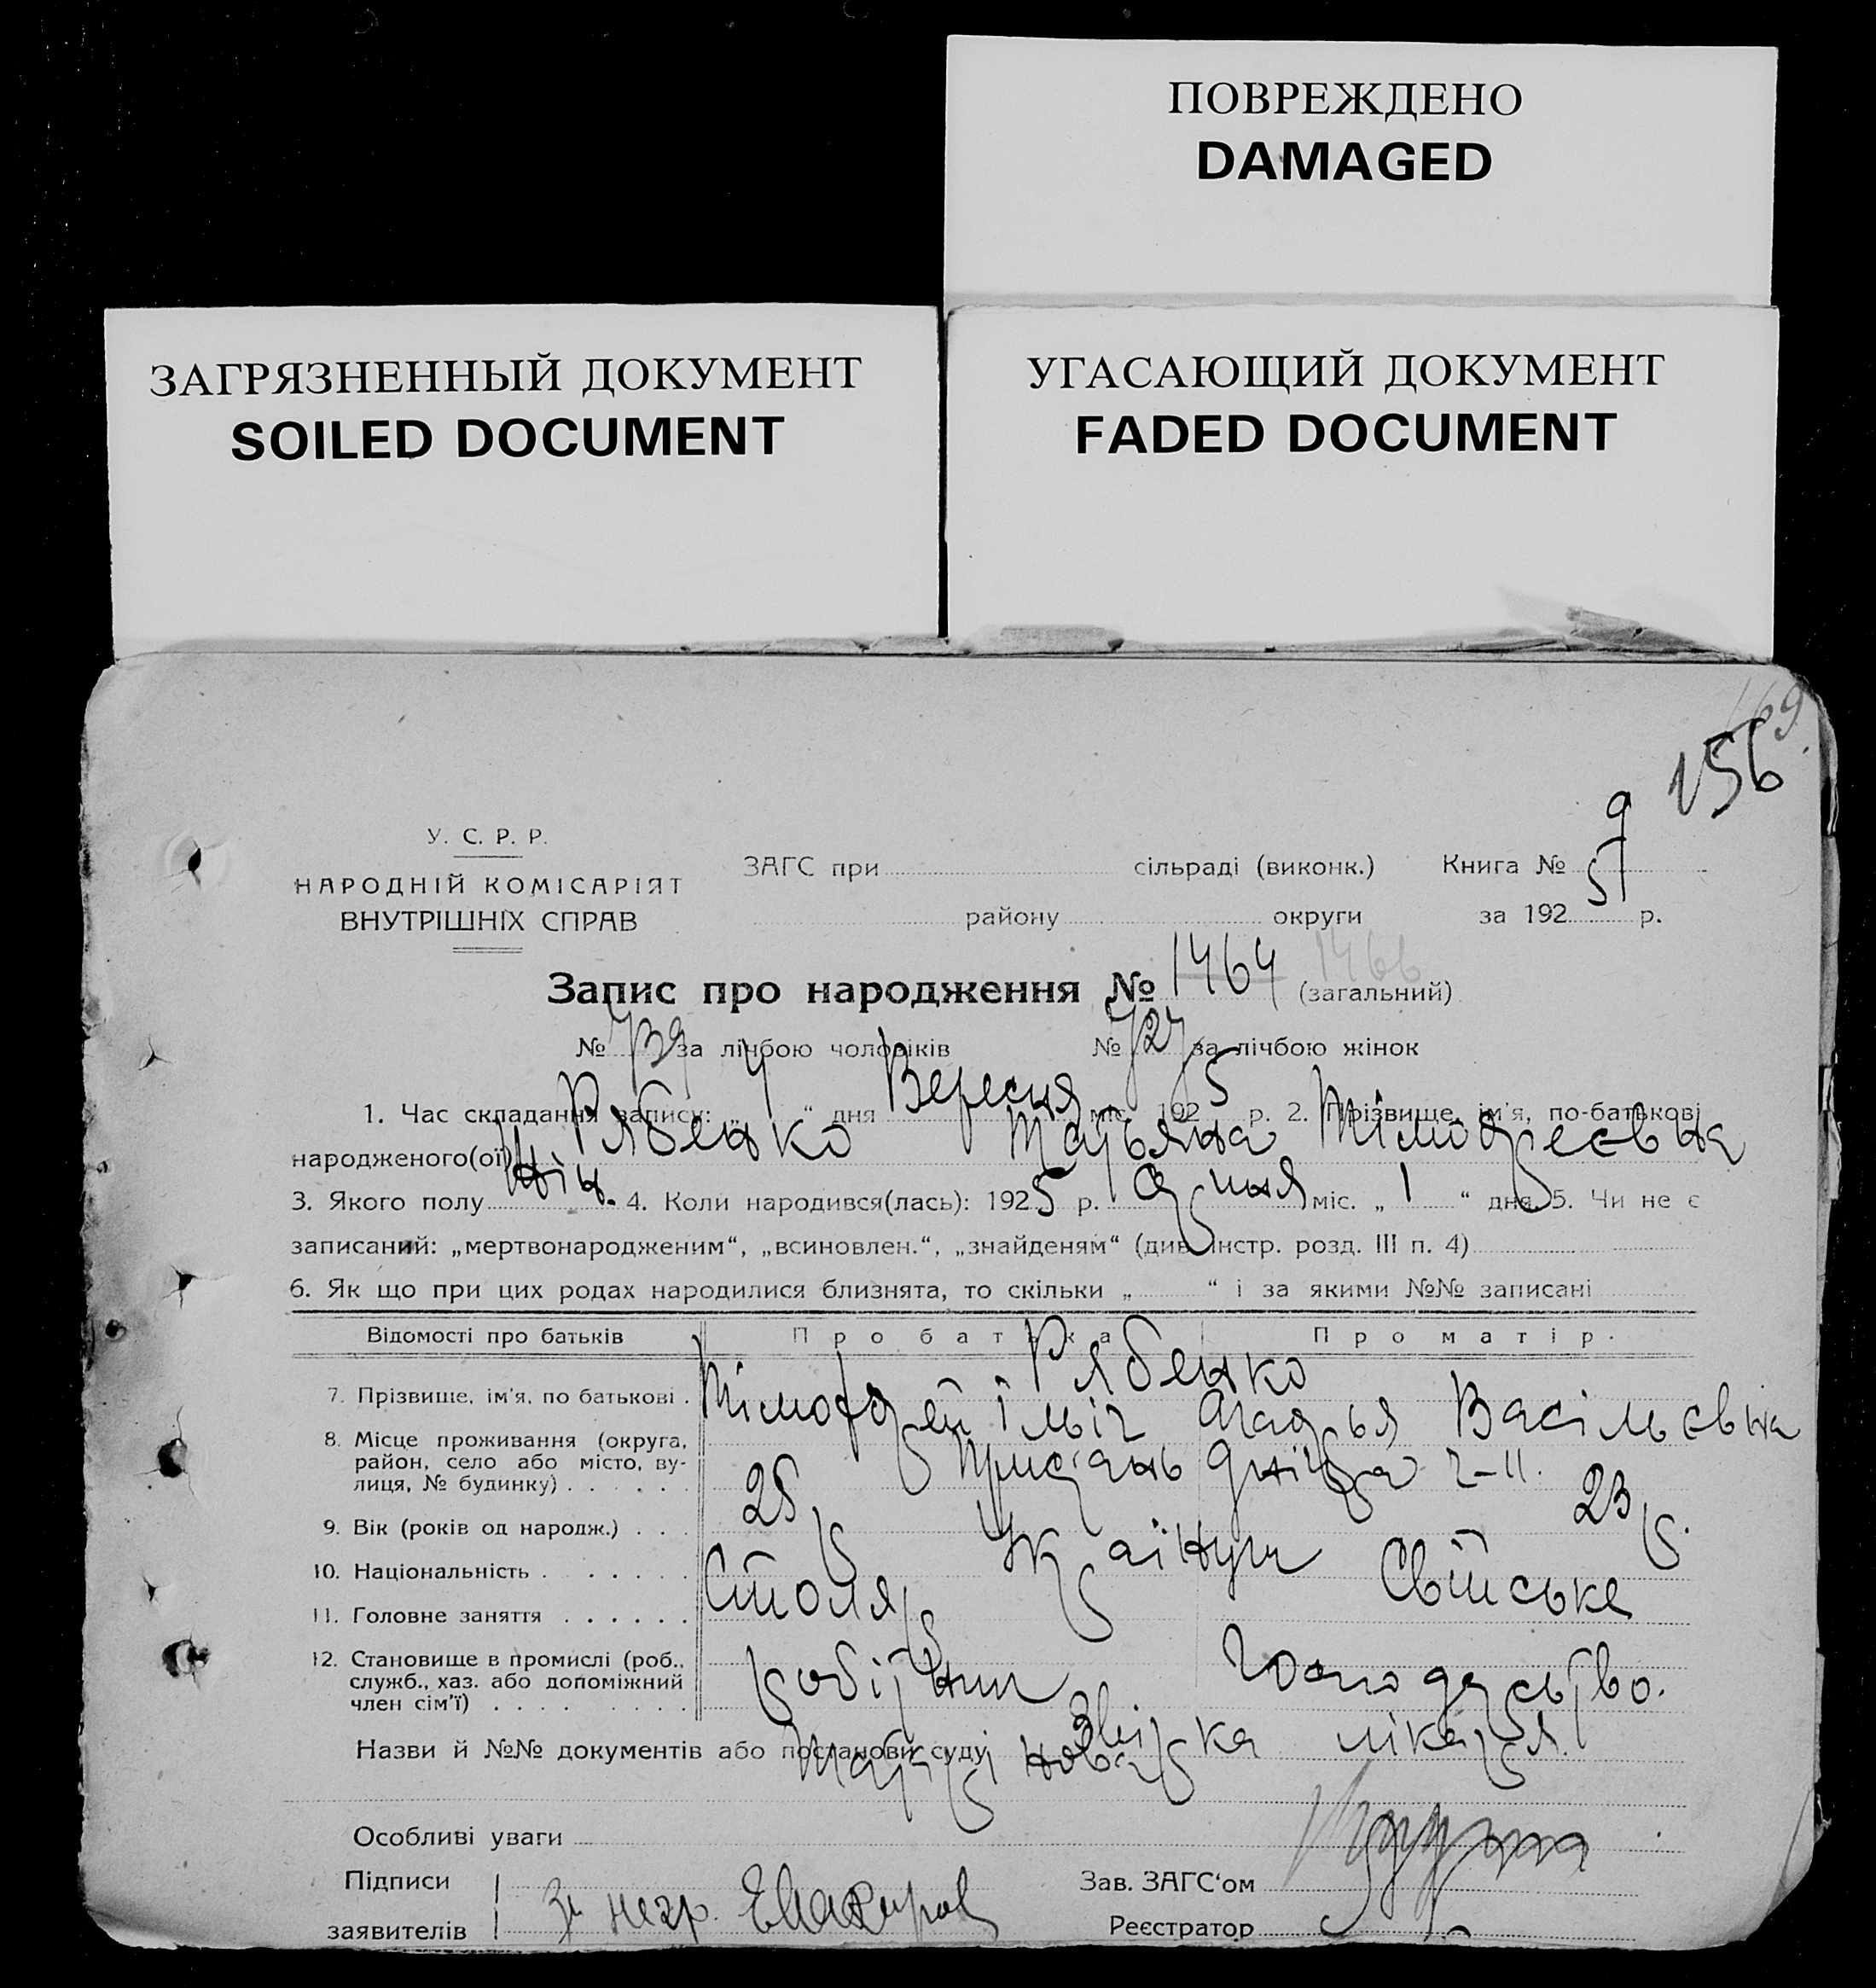 ПОВРЕЖДЕНО
DAMAGED
ЗАГРЯЗНЕННЫЙ ДОКУМЕНТ
SOILED DOCUMENT
УГАСАЮЩИЙ ДОКУМЕНТ
FADED DOCUMENT
169
156
У. С. Р. Р.
НАРОДНІЙ КОМІСАРІЯТ
ВНУТРІШНІХ СПРАВ
ЗАГС при сільраді (виконк.) Книга № 9
району округи за 1925 р.
Запис про народження № 1464 1466 (загальний)
№ 739 за лічбою чоловіків № 727 за лічбою жінок
1. Час складання запису: „ 4 “ дня Вересня міс. 1925 р. 2. Прізвище, ім'я, по-батькові
народженого(ої) Рябенко Татьяна Тімофеєвна
3. Якого полу Жін. 4. Коли народився(лась): 1925 р. міс. „ 1 “ дня. 5. Чи не є
записаний: „мертвонародженим“, „всиновлен.“, „знайденям“ (див. інстр. розд. III п. 4)
6. Як що при цих родах народилися близнята, то скільки „ “ і за якими №№ записані
Відомості про батьків Про батька Про матір.
Рябенко
7. Прізвище, ім'я, по батькові . Тімофей Ільіч Васільєвна
8. Місце проживання (округа, район, село або місто, вулиця, № будинку) . . . . . . Пристань Дніпра 2-11.
9. Вік (років од народж.) . . . 25 р 23 р.
10. Національність . . . . . . Українци
11. Головне заняття . . . . . . Столяр Свійське
12. Становище в промислі (роб., служб., хаз. або допоміжний член сім'ї) . . . . . . . . робітник господарство.
Назви й №№ документів або постанови суду Довірка лікаря.
Особливі уваги
Підписи
заявителів За негр.
Зав. ЗАГС'ом
Реєстратор